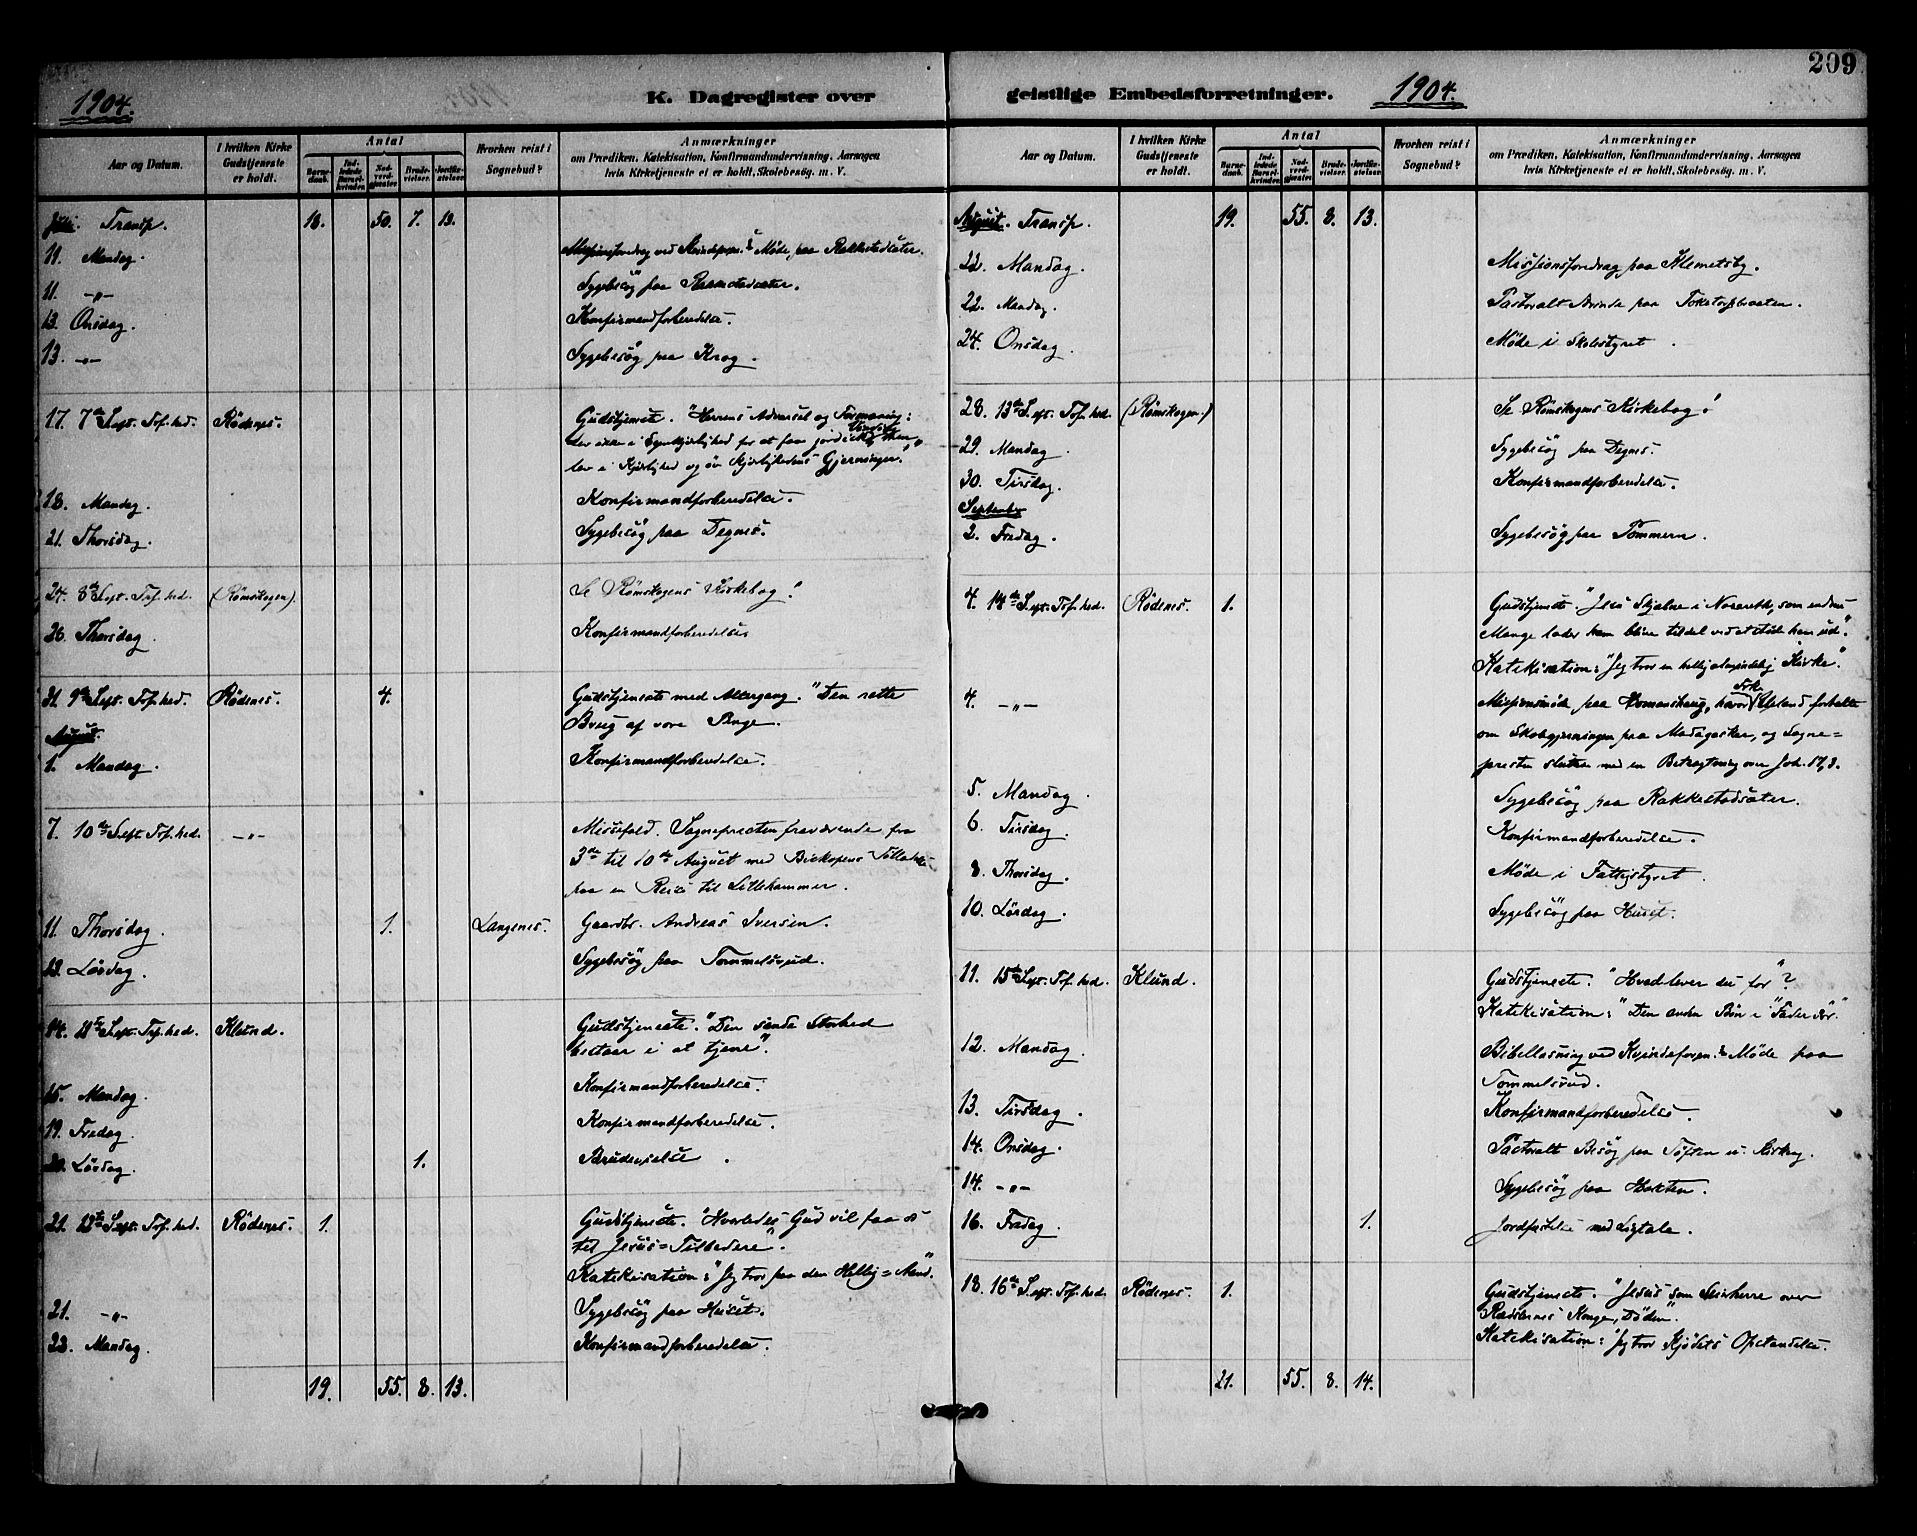 209
1904.
K. Dagregister over
Aar og Datum.
I hvilken Kirke Gudstjeneste er holdt.
Antal
Barnedaab.
Indledede Barselkvinder.
Nadverdgjester.
Brudevielser.
Jordfæstelser.
Hvorhen reist i Sognebud?
Anmærkninger
om Prædiken, Katekisation, Konfirmandundervisning, Aarsagen
hvis Kirketjeneste ei er holdt, Skolebesøg. m. V.
Juli. Transp. 18. 50. 7. 13.
11. Mandag. Missionsforedrag ved Kvindeforen.s Møde paa Rakkestadsæter.
11. -„- Sygebesög paa
13. Onsdag. Konfirmandforberedelse.
13. -„- Sygebesög paa Krog.
17. 7de S. eft. Tref. hed. Rödenes. Gudstjeneste. "Herrens Advarsel og Formaning:
lev ikke i Egenkjærlighed for at faa jordisk Vinding, men
lev i Kjærlighed og öv Kjærlighedens Gjerninger."
18. Mandag. Konfirmandforberedelse.
21. Thorsdag. Sygebesög paa Degnes.
24. 8de S. eft. Tref. hed. (Römskogen). Se Römskogens Kirkebog!
28. Thorsdag. Konfirmandforberedelse
31. 9de S. eft. Tref. hed. Rödenes. 4. Gudstjeneste med Altergang. "Den rette
Brug af vore Penge.
August.
1. Mandag. Konfirmandforberedelse.
7. 10de S. eft. Tref. hed. -„- Messefald. Sognepresten fraværende fra
3de til 10de August med Biskopens Tilladelse
paa en Reise til Lillehammer.
11. Thorsdag. 1. Langenes. Gaardbr. Andreas Iversen.
13. Lördag. Sygebesög paa Tommelsrud.
14. 11te S. eft. Tref. hed. Klund. Gudstjeneste. "Den sande Storhed
bestaar i at tjene".
15. Mandag. Konfirmandforberedelse.
19. Fredag. Konfirmandforberedelse.
20. Lördag. 1. Brudevielse.
21. 12te S. eft. Tref. hed. Rödenes. 1. Gudstjeneste. "Hvorledes Gud vil faa os
til Jesus-Tilbedere".
Katekisation: "Jeg tror paa den Hellig-Aand."
21. -„- Sygebesög paa Huset.
22. Mandag. Konfirmandforberedelse.
19. 55. 8. 13.
geistlige Embedsforretninger.
1904.
Aar og Datum.
I hvilken Kirke Gudstjeneste er holdt.
Antal
Barnedaab.
Indledede Barselkvinder.
Nadverdgjester.
Brudevielser.
Jordfæstelser.
Hvorhen reist i Sognebud?
Anmærkninger
om Prædiken, Katekisation, Konfirmandundervisning, Aarsagen
hvis Kirketjeneste ei er holdt, Skolebesøg. m. V.
August. Transp. 19. 55. 8. 13.
22. Mandag. Missionsforedrag paa Klemetsby.
22. Mandag. Pastoralt Ærinde paa
24. Onsdag. Møde i Skolestyret.
28. 13de S. eft. Tref. hed. (Römskogen.) Se Römskogens Kirkebog!
29. Mandag. Sygebesög paa Degnes.
30. Tirsdag. Konfirmandforberedelse.
September
2. Fredag. Sygebesög paa Tommern.
4. 14de S. eft. Tref. hed. Rödenes. 1. Gudstjeneste. "Jesu Skjæbne i Nazareth, som endnu
Mange lader ham blive tildel ved at støde ham ud".
Katekisation: "Jeg tror en hellig almindelig Kirke."
4. -„- Missionsmøde paa Homanshaug, hvor Frk. fortalte
om Skolegjerningen paa Madagaskar, og Sogne-
presten sluttede med en Betragtning over Joh. 17,3.
5. Mandag. Sygebesög paa Rakkestadsæter.
6. Tirsdag. Konfirmandforberedelse.
8. Thorsdag. Møde i Fattigstyret.
10. Lördag. Sygebesög paa Huset.
11. 15de S. eft. Tref. hed. Klund. Gudstjeneste. "Hvad lever du for"?
Katekisation: "Den anden Bön i "Fader Vor".
12. Mandag. Bibellæsning ved Kvindeforen.s Møde paa
Tommelsrud.
13. Tirsdag. Konfirmandforberedelse.
14. Onsdag. Pastoralt Besög paa Toften u. Kirkeng.
14. -„- Sygebesög paa
16. Fredag. 1. Jordfæstelse med Ligtale.
18. 16de S. eft. Tref. hed. Rödenes. 1. Gudstjeneste. "Jesus som Seierherre over
Rædslernes Konge, Døden".
Katekisation: "Jeg tror Kjödets Opstandelse.
21. 55. 8. 14.